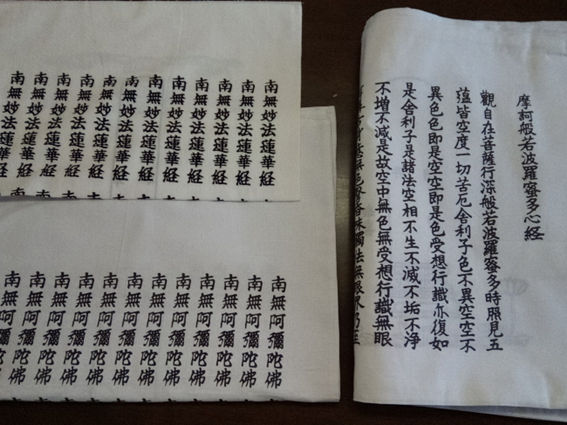 摩訶般若波羅蜜多心経
觀自在菩薩行深般若波羅蜜多時照見五
蘊皆空度一切苦厄舍利子色不異空空不
異色色即是空空即是色受想行識亦復如
是舍利子是諸法空相不生不滅不垢不淨
不增不減是故空中無色無受想行識無眼
香味觸法無眼界乃至
南無妙法蓮華経
南無妙法蓮華経
南無妙法蓮華経
南無妙法蓮華経
南無妙法蓮華経
南無妙法蓮華経
南無妙法蓮華経
南無妙法蓮華経
南無妙法蓮華経
南無妙法蓮華経
南無妙法蓮華経
南無妙法蓮華経
南無阿彌陀佛
南無阿彌陀佛
南無阿彌陀佛
南無阿彌陀佛
南無阿彌陀佛
南無阿彌陀佛
南無阿彌陀佛
南無阿彌陀佛
南無阿彌陀佛
南無阿彌陀佛
南無阿彌陀佛
南無阿彌陀佛